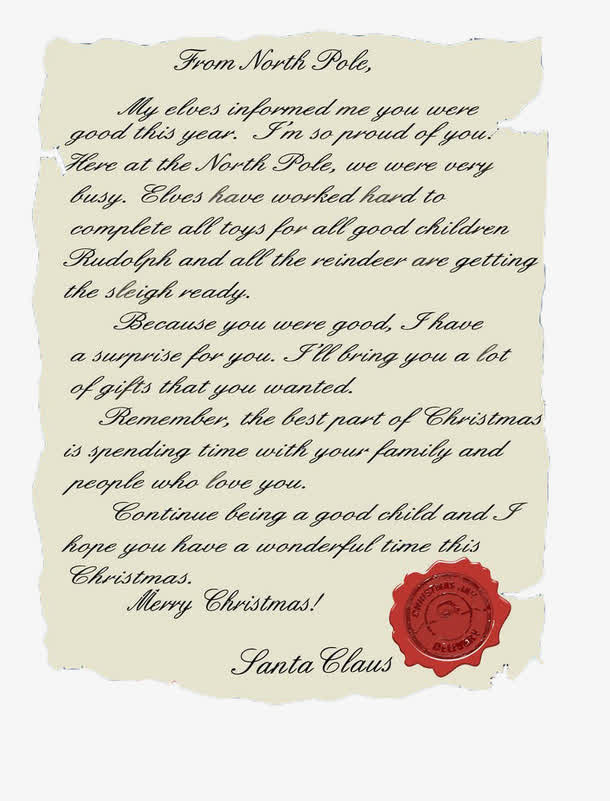 From North Pole,
My elves informed me you were
good this year. I'm so proud of you.
Here at the North Pole, we were very
busy. Elves have worked hard to
complete all toys for all good children
Rudolph and all the reindeer are getting
the sleigh ready.
Because you were good, I have
a surprise for you. I'll bring you a lot
of gifts that you wanted.
Remember, the best part of Christmas
is spending time with your family and
people who love you.
Continue being a good child and I
hope you have a wonderful time this
Christmas.
Merry Christmas!
Santa Claus
CHRISTMAS
DELIVERY